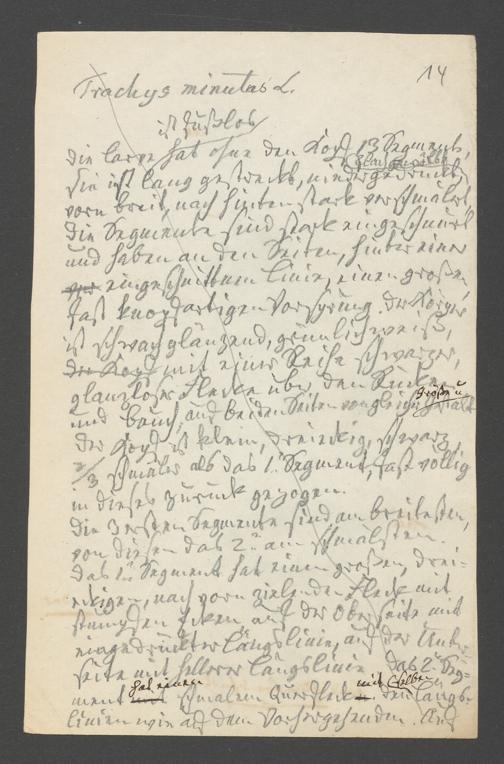 14
Trachys minutas L.
ist fußlos,
Die Larve hat ohne den Kopf 13 Segmente,
sie ist lang gestreckt, niedergedrückt,
vorn breit, nach hinten stark verschmälert
die Segmente sind stark eingeschnürt
und haben an den Seiten, hinter einer
eingeschnittnen Linie, einen großen,
fast knopfartigen Vorsprung. der Körper
ist schwach glänzend, grünlichweiß,
der Kopf mit einer Reihe schwarzer,
glanzloser Flecke über den Rücken
und Bauch, auf beiden Seiten von gleicher Größe u
Gestalt
der Kopf ist klein, dreieckig, schwarz,
2/3 schmäler als das 1. Segment, fast völlig
in dieses zurück gezogen.
die 3 ersten Segmente sind am breitesten,
von diesen das 2te am schmalsten.
das 1te Segment hat einen großen, drei-
eckigen, nach vorn zielenden Fleck mit
stumpfen Ecken auf der Oberseite mit
eingedrückter Längslinie, auf der Unter
seite mit hellerer Längslinie. das 2te Seg-
ment hat einen schmalen Querfleck mit derselben Längs-
linien wie auf dem Vorhergehenden. Auf